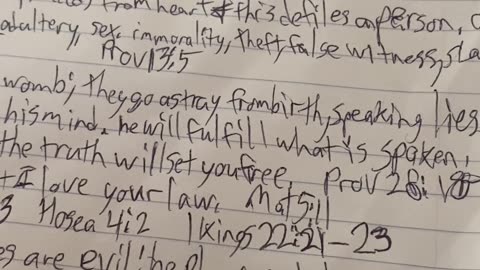 from heart this defiles a person,
adultery, sex, immorality, theft, false witness, sla
Prov 13:5
womb; they go astray from birth, speaking lies
his mind. he will fulfill what is spoken,
the truth will set you free. Prov 28:
I love your law. Mat 5:11
3 Hosea 4:2 1 Kings 22:21-23
es are evil! the